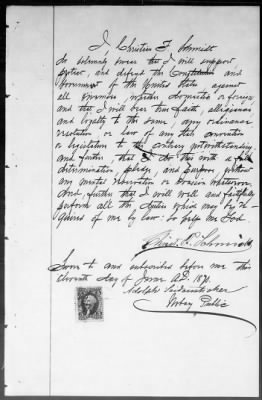 I, Christian F. Schmidt
do solemnly swear that I will support,
protect, and defend the Constitution and
Government of the United States against
all enemies, whether domestic or foreign
and that I will bear true faith, allegiance
and loyalty to the same, any ordinance
resolution or law of any State convention
or legislation to the contrary notwithstanding
and further, that I do this with a full
determination, pledge, and purpose, without
any mental reservation or evasion whatsoever
And, further that I will well and faithfully
perform all the duties which may be re-
quired of me by law: So help me God.
Schmidt
Sworn to and subscribed before me this
eleventh day of June A.D. 1870.
Adolph
Notary Public